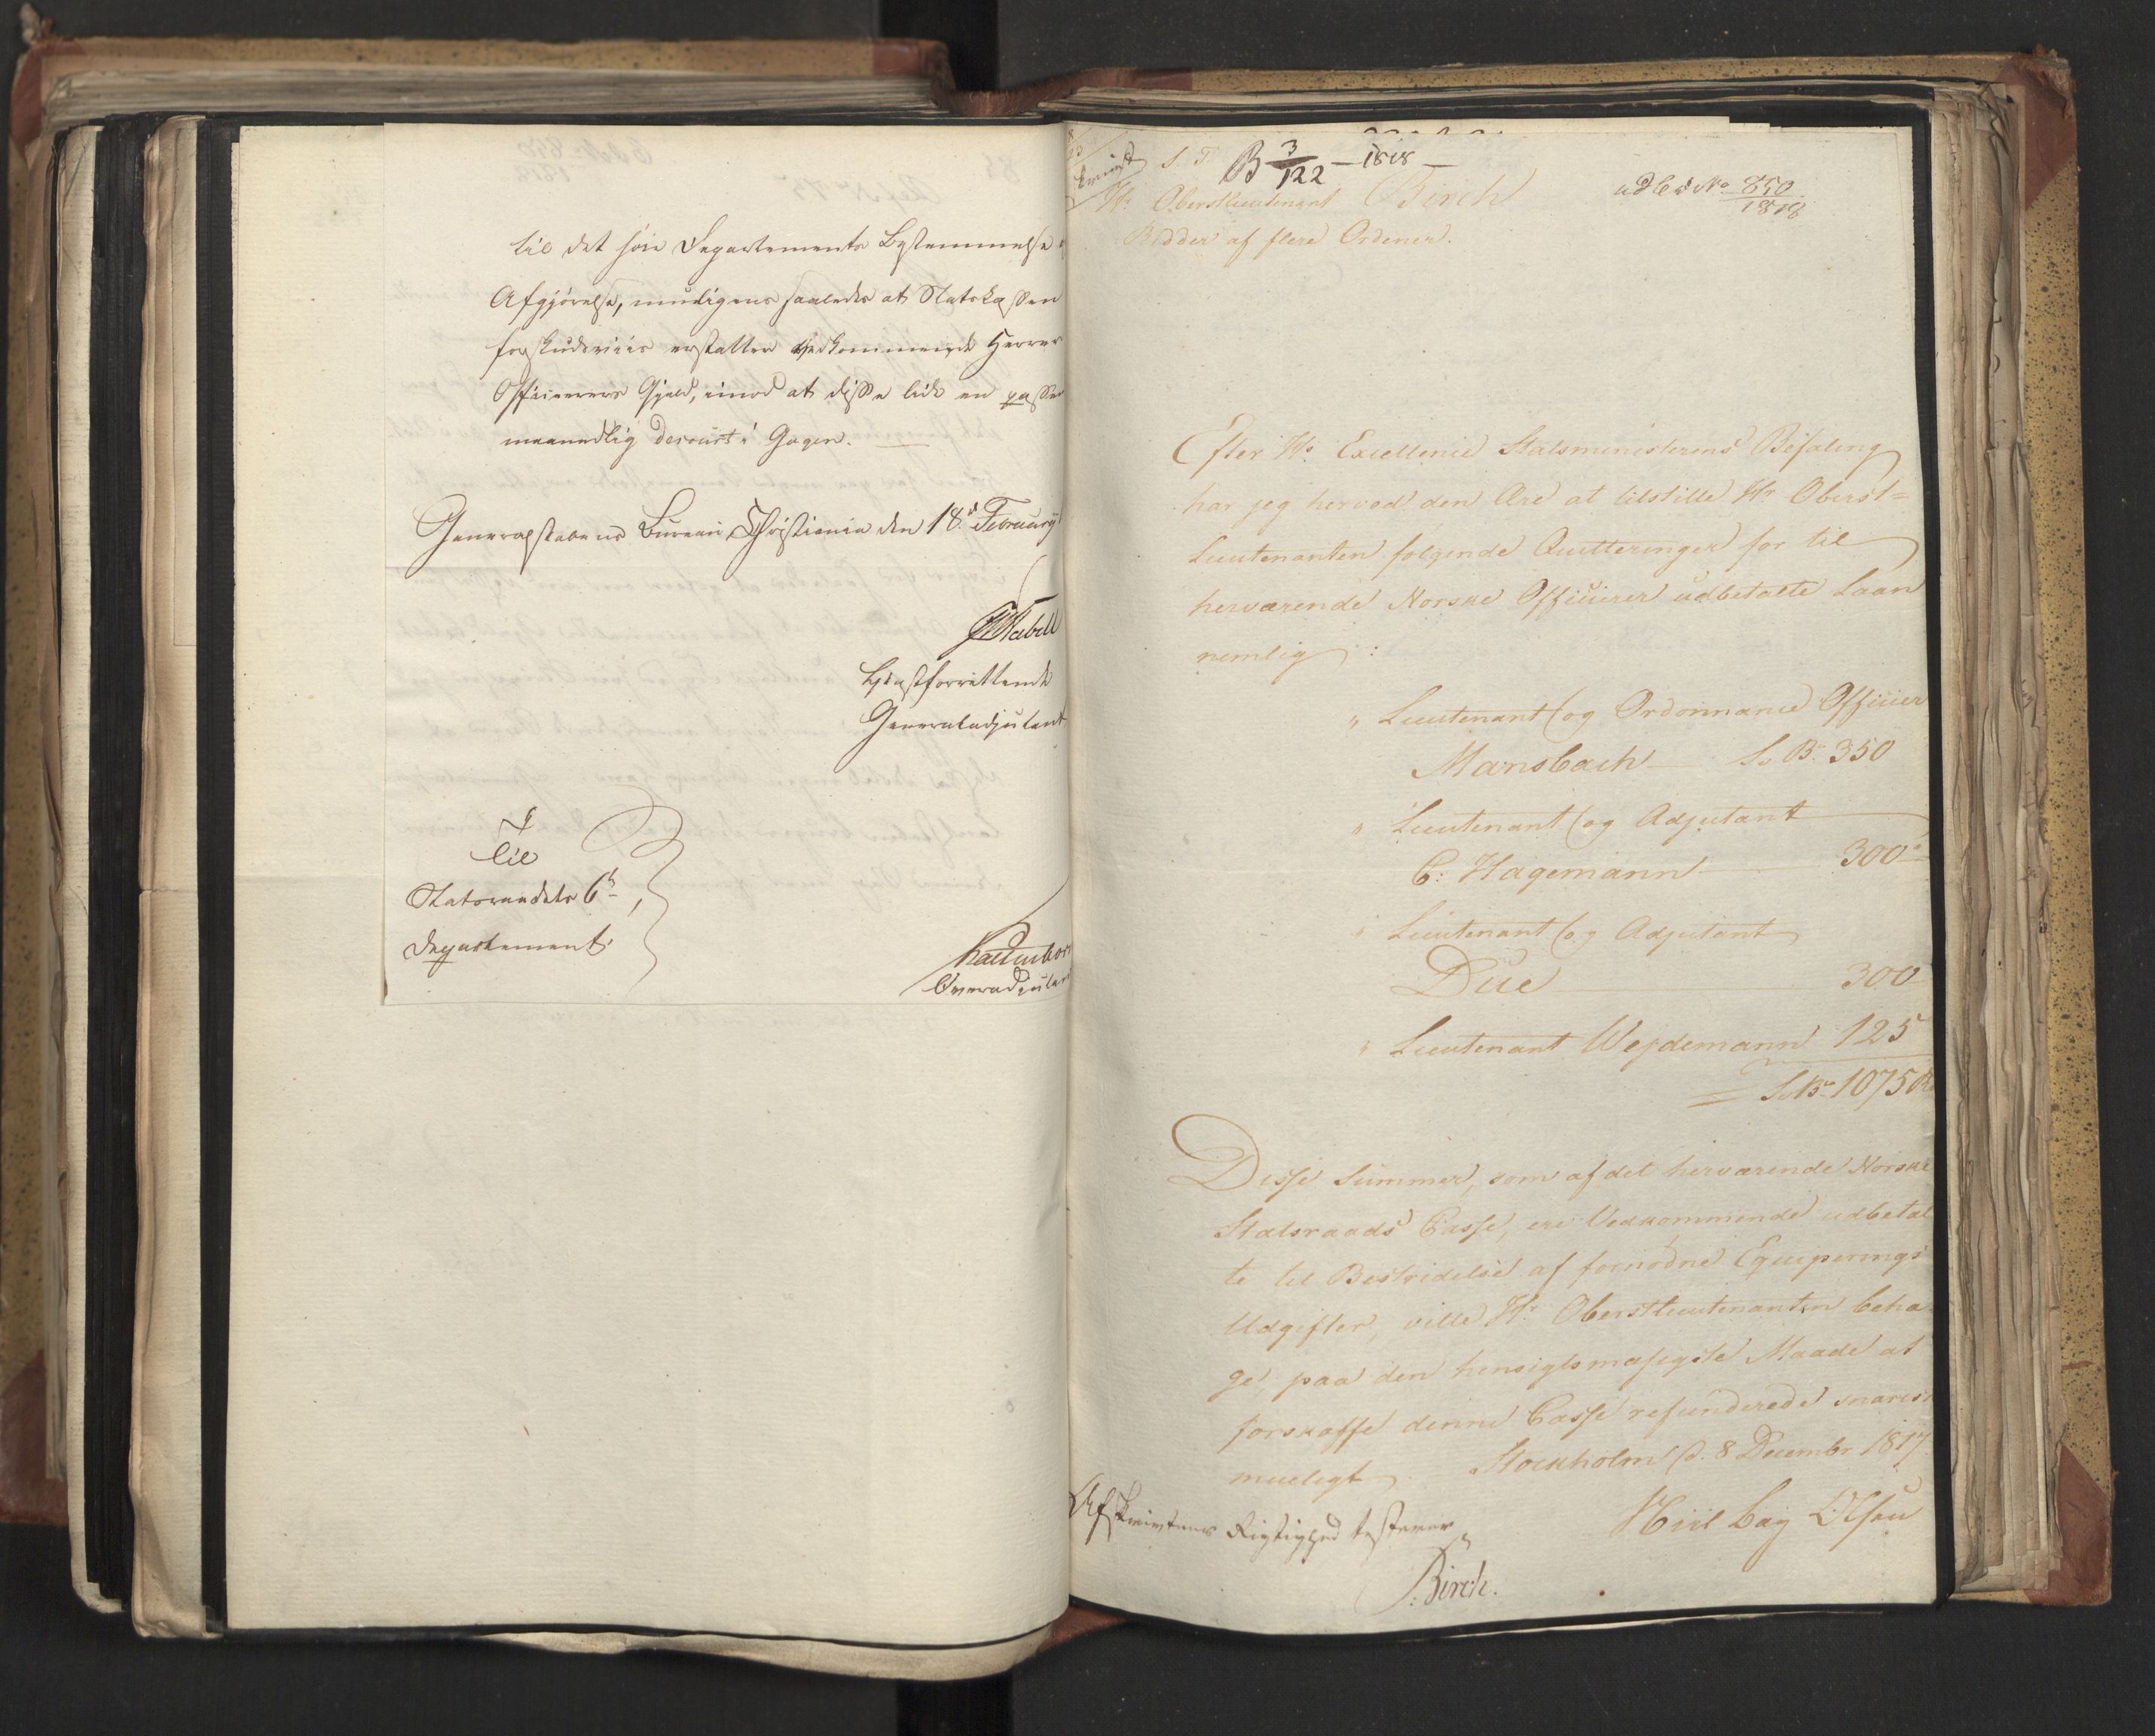 til det høie Departements Bestemmelse
Afgjørelse, muligens saaledes at Statskassen
forskudsviis erstatter Vedkommende Herrer
Officierers Gjæld, imod at disse lide en passen
maanedlig Decourt i Gagen.
Generalstabens Bureau Christiania den 18d Februarij
Tjenstforrettende
Generaladjutant
Til
Statsraadets 6te
Departement.
Haffner
Overadjutant
B 3/122 - 1818 -
S. T.
Hr. Oberstlieutenant Birch
Ridder af flere Ordener.
udb d No 850
1818
Efter Hs Excellence Statsministerens Befaling
har jeg herved den Ære at tilstille Hr Oberst=
Lieutenanten følgende Quitteringer for til
herværende Norske Officierer udbetalte Laan
nemlig :
" Lieutenant og Ordonnance Officier
Mansbach — S. Bco 350
" Lieutenant og Adjutant
C: Hagemann — 300
" Lieutenant og Adjutant
Due — 300
" Lieutenant Wejdemann 125
= S Bco 1075 R
Disse Summer, som af det herværende Norske
Statsraads Casse, ere Vedkommende udbetal
te til Bestridelse af fornødne Equiperings
Udgifter, ville Hr. Oberstlieutenanten beha
ge, paa den hensigtsmæsigste Maade at
forskaffe denne Casse refunderede snarest
mueligt. Stockholm d. 8 Decembr 1817
Afskrivtens Rigtighed testerer
Birch.